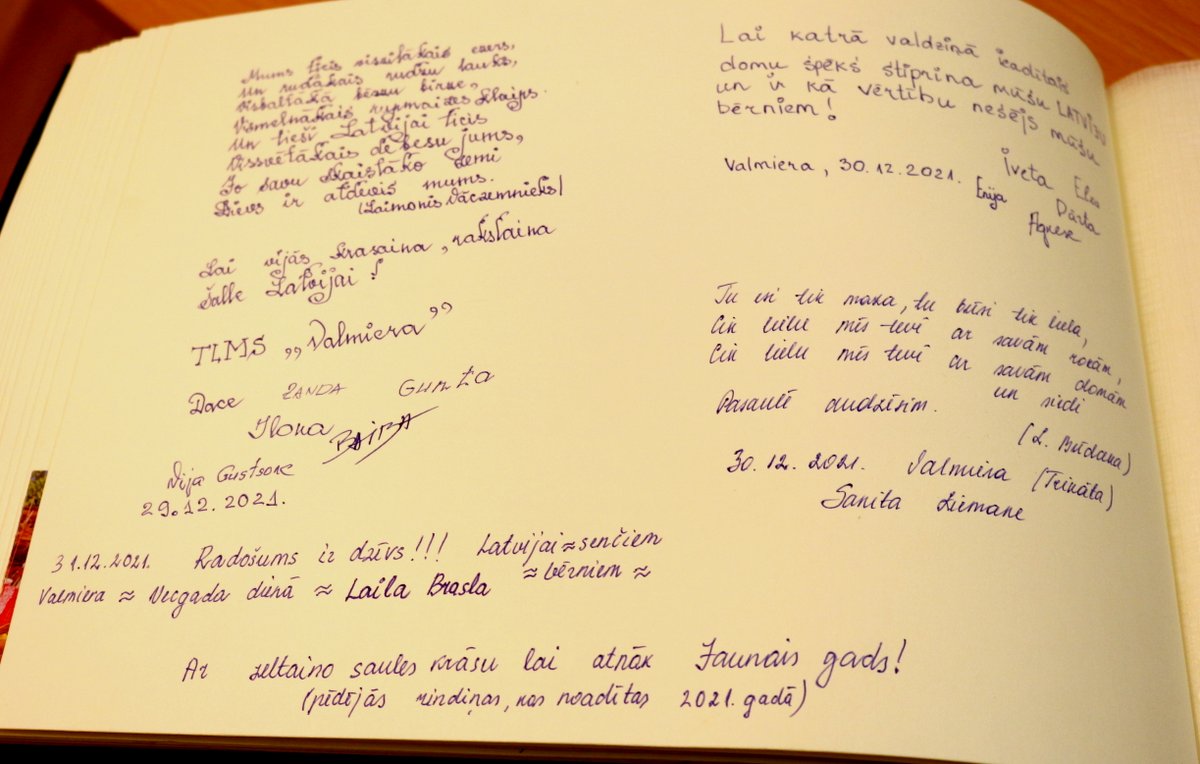 Mums ticis viszilākais ezers,
Un rudākais rudzu lauks,
Visbaltākā bērzu birze,
Vismelnākais rupjmaizes klaips.
Un tieši Latvijai ticis
Vissvētākais debesu jums,
Jo savu skaistāko zemi
Dievs ir atdevis mums.
(Laimonis Vāczemnieks)
Lai vijās krasaina, rakstaina
Šalle Latvijai!
TLMS „Valmiera”
Dace ZANDA Gunta
Ilona BAIBA
Vija Gustsone
29.12.2021.
31.12.2021. Radošums ir dzīvs!!! Latvijai ≈ senčiem
Valmiera ≈ Vecgada dienā ≈ Laila Brasla ≈ bērniem ≈
Lai katrā valdziņā ieadītais
domu spēks stiprina mūsu LATVIJU
un ir kā vērtību nesējs mūsu
bērniem!
Valmiera, 30.12.2021. Iveta Elza
Enija Dārta
Agnese
Tu esi tik maza, tu būsi tik liela,
Cik lielu mīs tevi ar savām rokām,
Cik lielu mīs tevi ar savām domām
un sirdi
Pasaulē audzēsim.
(L. Brīdaka)
30.12.2021. Valmiera (Trikāta)
Sanita Liemane
Ar zeltaino saules krāsu lai atnāk Jaunais gads!
(pēdējās rindiņas, kas noadītas 2021. gadā)